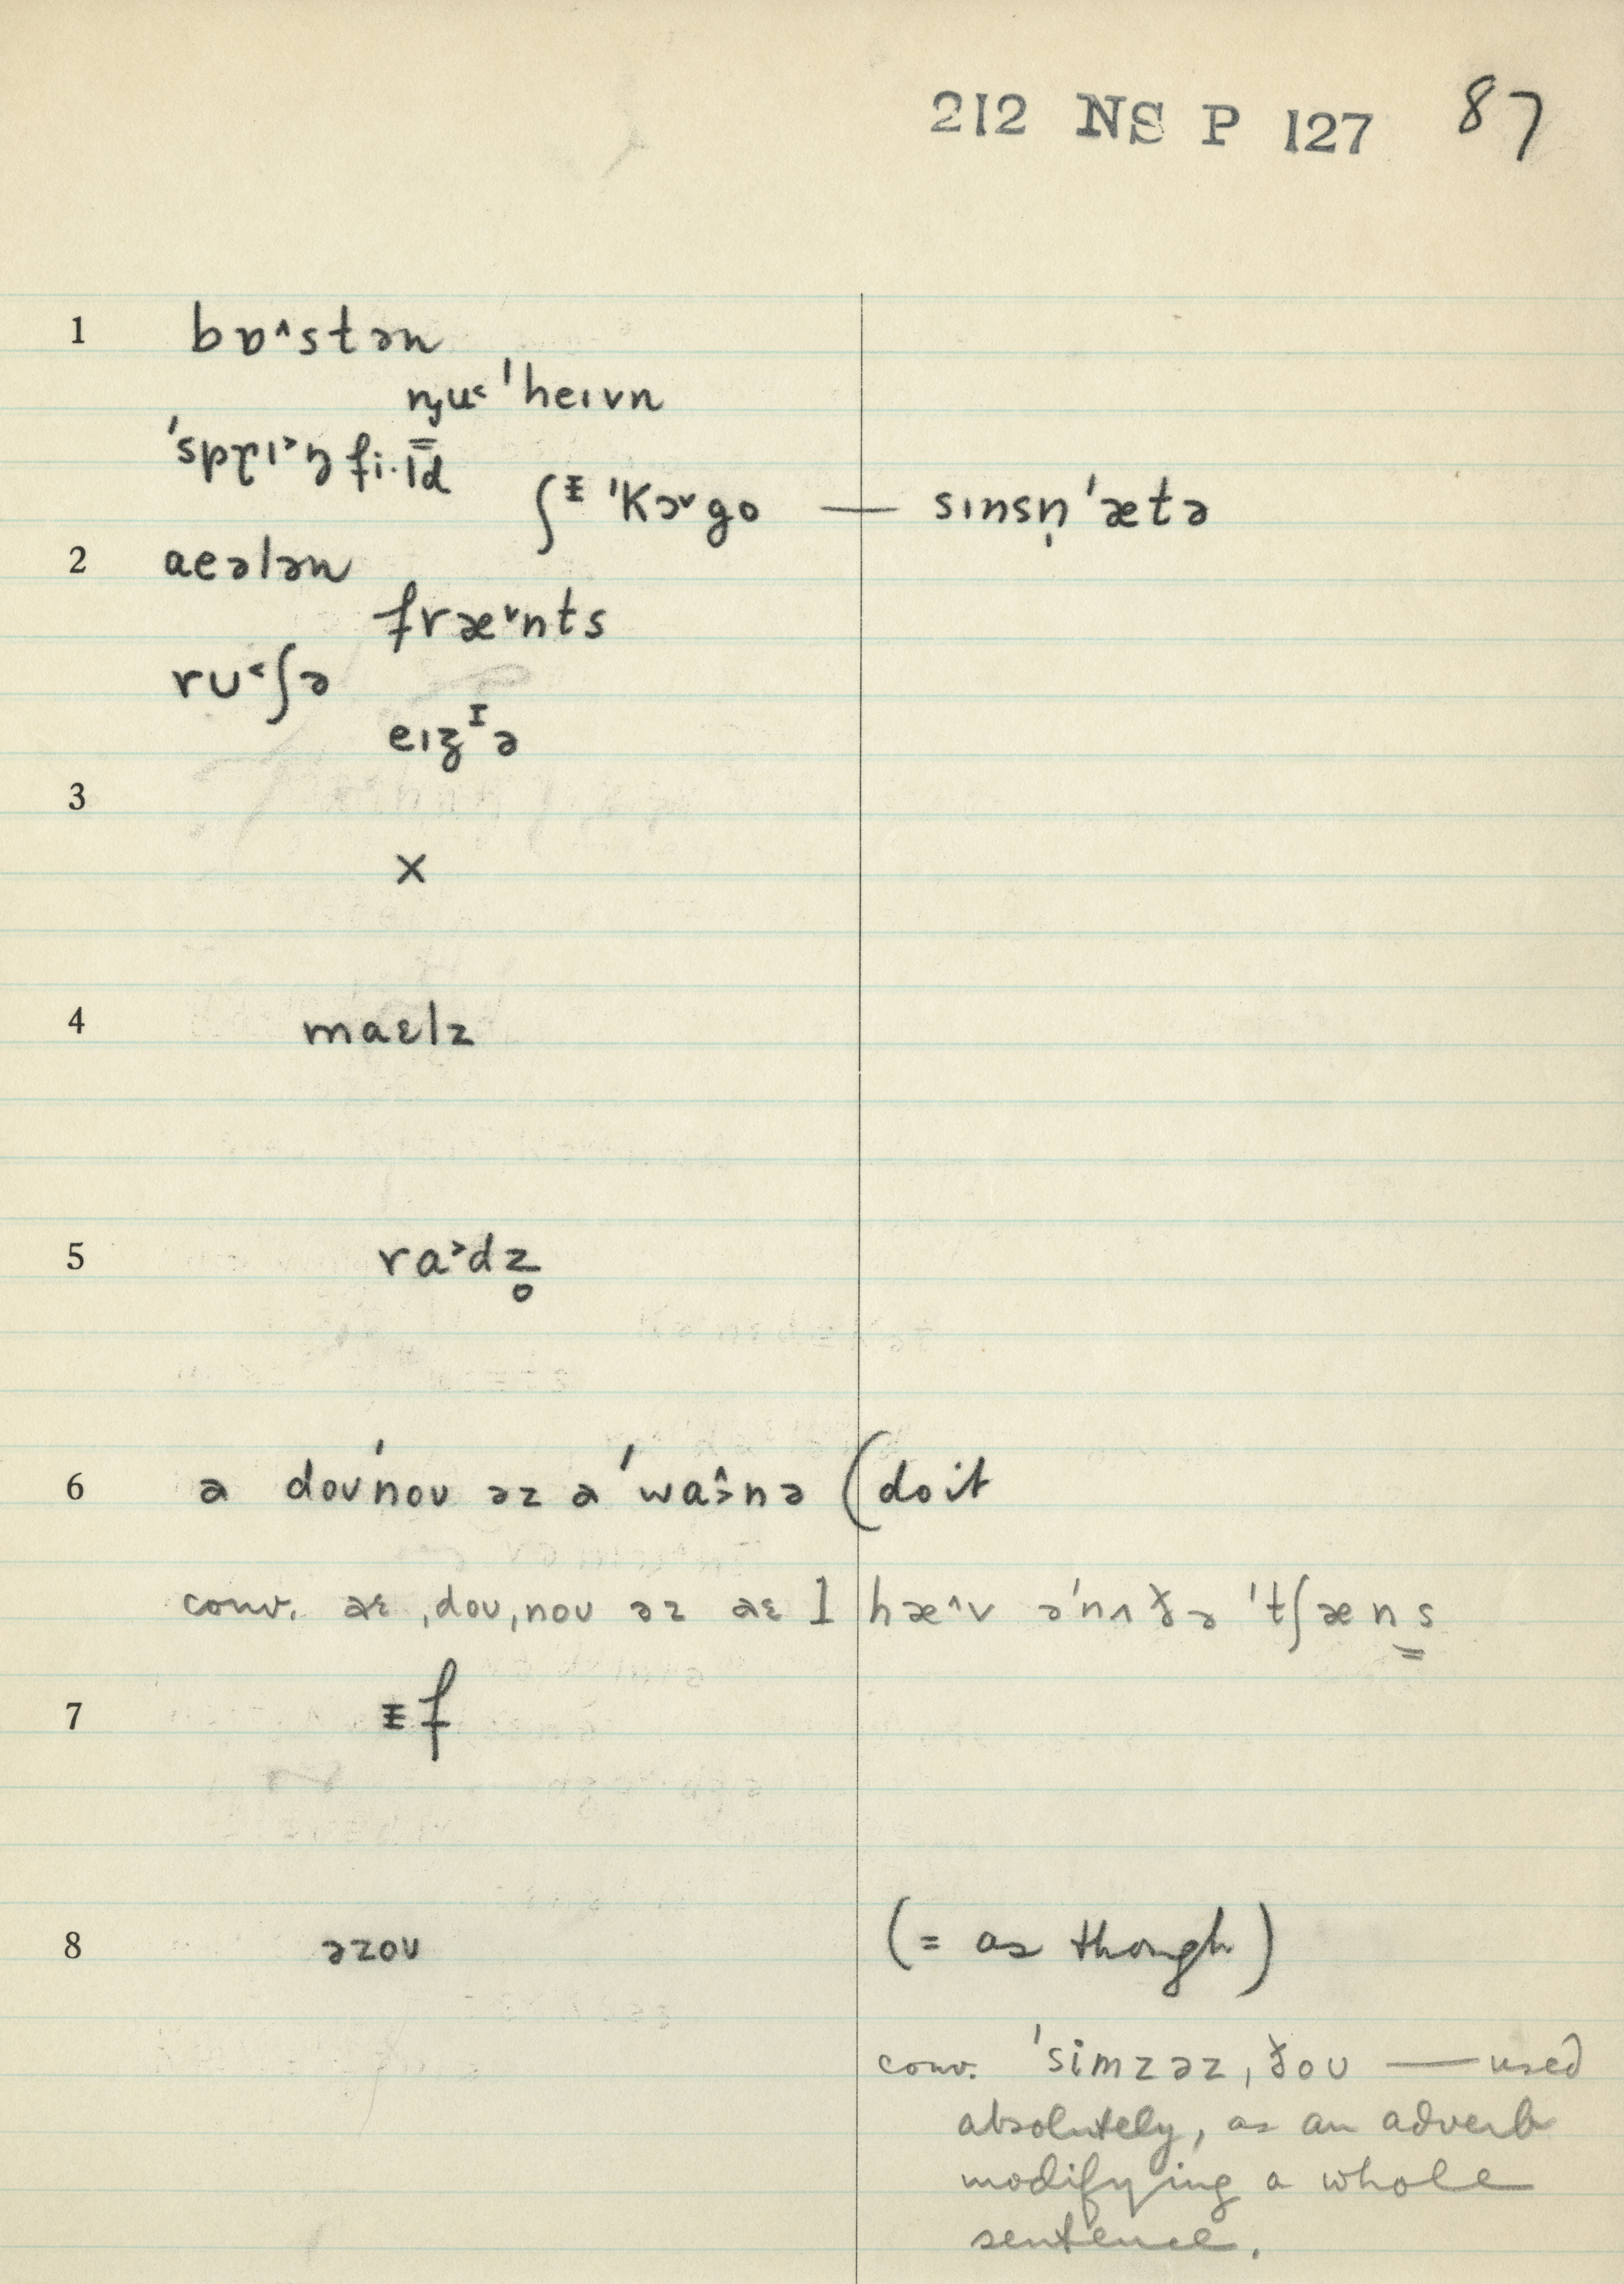 212 NS P 127 87
1 bɒ˄stən
n̡u˂ ˈheɪvn
ˈsprɪ˃ŋfi·l̿d
ʃᵻ ˈkɚgo — sɪnsn̩ˈætə
2 aeələn
fræ˅nts
ru˂ʃə
eɪʒᴵə
3
x
4 maɛlz
5 ra˃dz̥
6 ə doʊˈnoʊ əz ə ˈwa˃̂nə (do it
conv. aɛ ˌdoʊˌnoʊ əz aɛ l hæ˄v əˈnʌðə ˈtʃæns̳
7 ᵻf
8 əzoʊ (= as though)
conv. ˈsimzəzˌðoʊ — used
absolutely, as an adverb
modifying a whole
sentence.